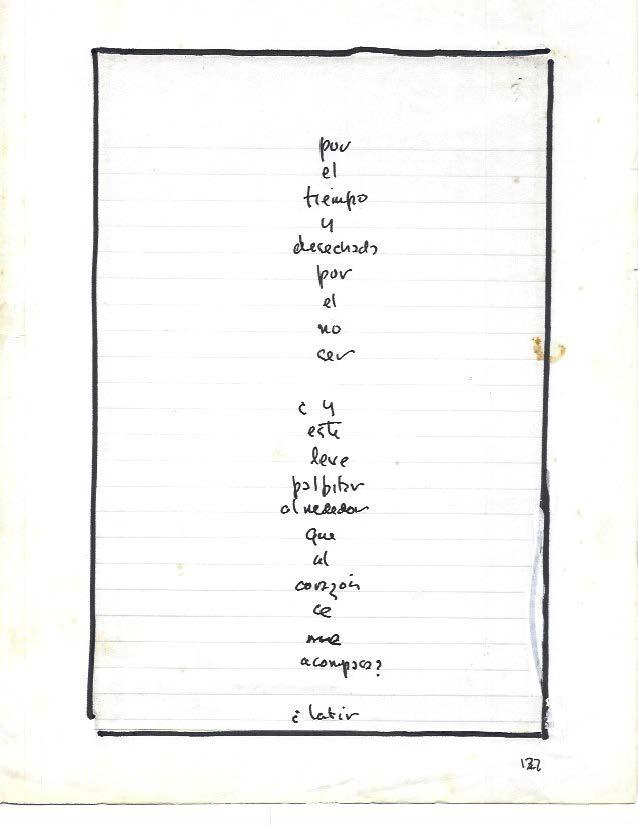 por
el
tiempo
y
desechada
por
el
no
ser
¿ y
este
leve
palpitar
alrededor
que
al
corazón
se
me
acompasa?
¿ latir
127